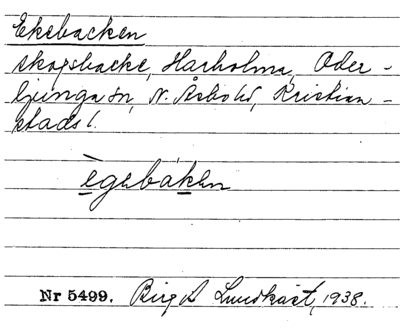 Ekebacken
skogsbacke, Harholma, Oder-
ljunga sn, N. Åsbo hd, Kristian-
stads l.
ègebáken
Nr 5499. Birg A Lundkvist, 1938.